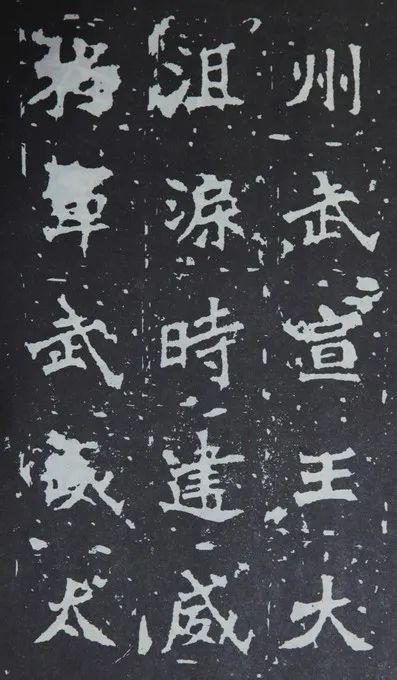 州武宣王大
沮渠時建威
將軍武太